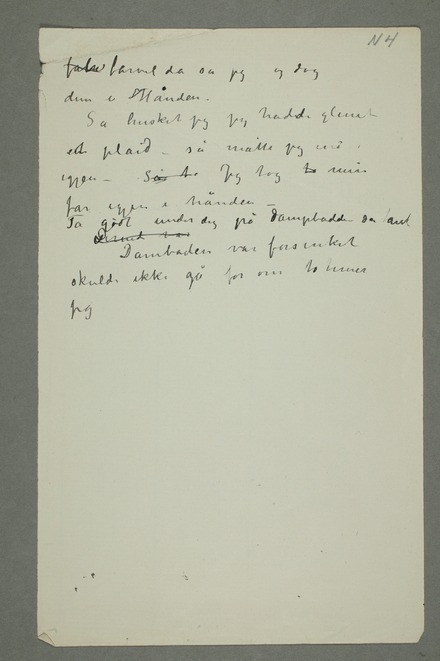 N 4
farvel da sa jeg og tog
dem i Hånden.
Så husket jeg jeg hadde glemt
et plaid – så måtte jeg ind
igjen – Så to Jeg tog to min
far igjen i hånden –
Ta godt under dig på Dampbadden sa
Dambåden var forsinket
skulde ikke gå før om to timer
jeg